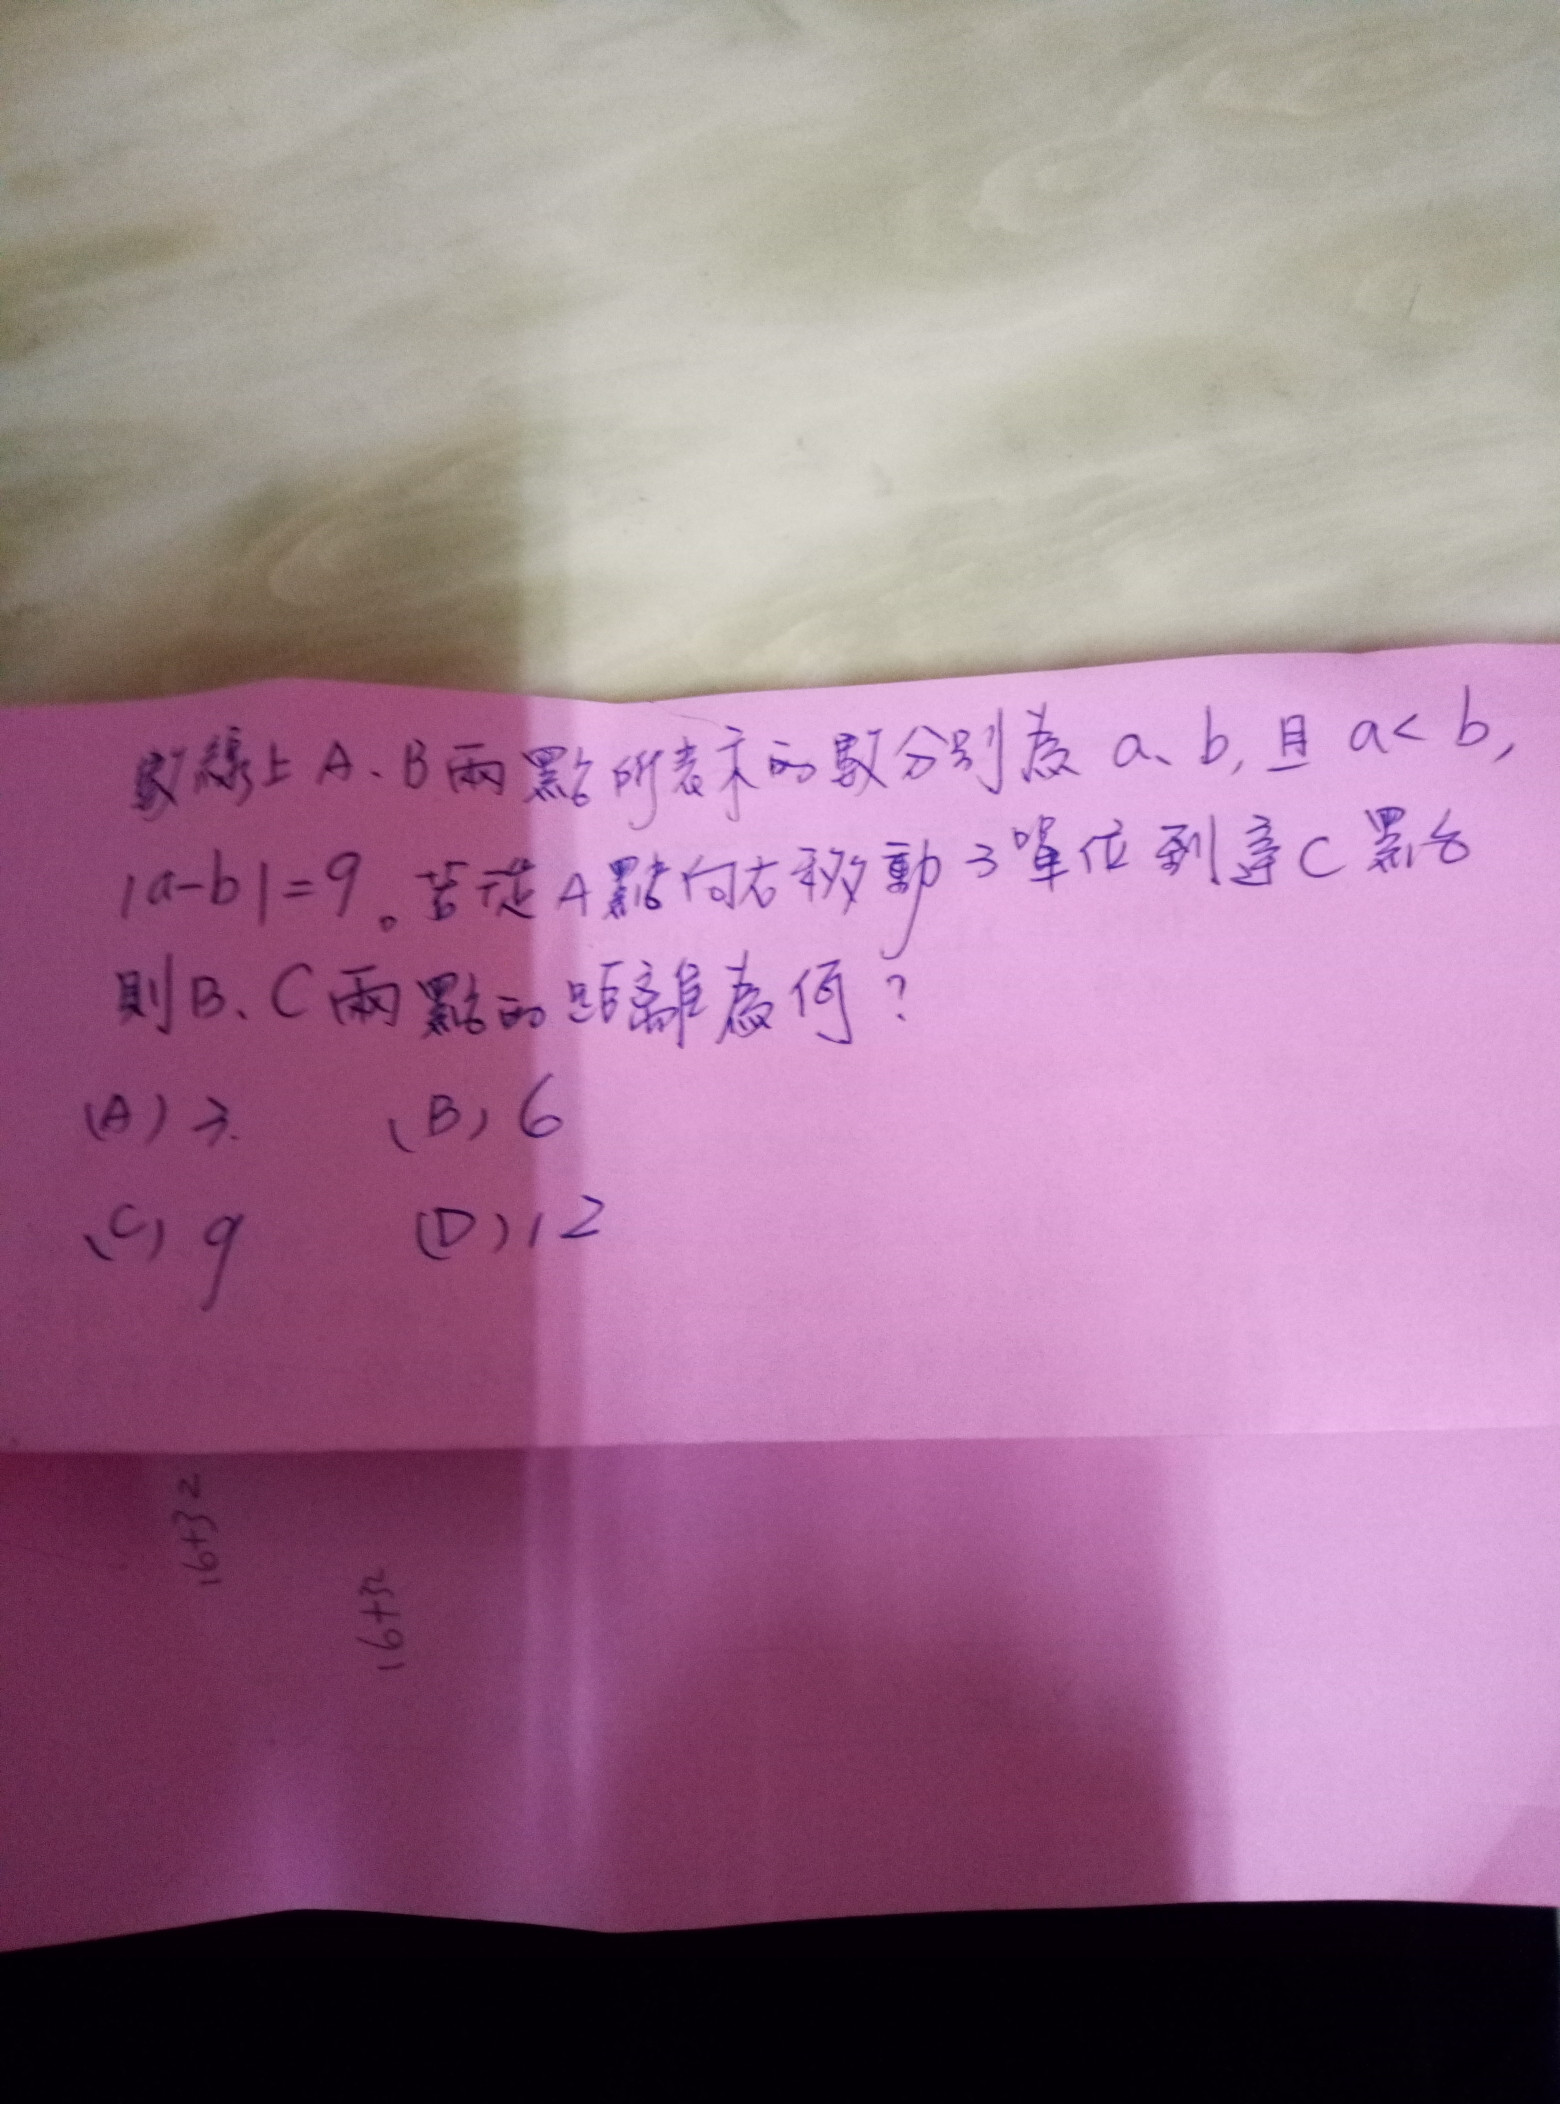 數線上A、B兩點所表示的數分別為 a、b, 且 a< b,
|a-b|=9。若從A點向右移動3單位到達C點
則B、C兩點的距離為何?
(A) 3. (B) 6
(C) 9 (D) 12
16+32
16+32